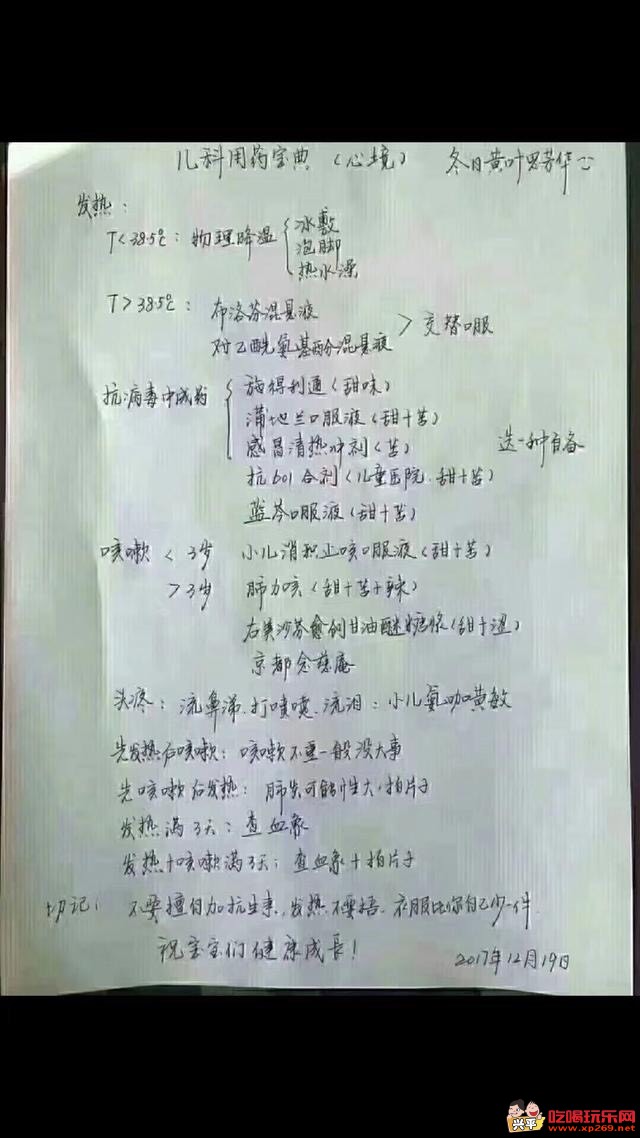 儿科用药宝典（心境） 冬日黄叶思芳华
发热：
T<38.5℃：物理降温 冰敷
泡脚
热水澡
T>38.5℃：布洛芬混悬液
对乙酰氨基酚混悬液 > 交替口服
抗病毒中成药 施得利通（甜味）
蒲地兰口服液（甜+苦）
感冒清热冲剂（苦） 选一种自备
抗601合剂（儿童医院.甜+苦）
蓝芩口服液（甜+苦）
咳嗽 <3岁 小儿消积止咳口服液（甜+苦）
>3岁 肺力咳（甜+苦+辣）
右美沙芬愈创甘油醚糖浆（甜+涩）
京都念慈庵
头疼：流鼻涕.打喷嚏.流泪：小儿氨咖黄敏
先发热后咳嗽：咳嗽不重一般没大事
先咳嗽后发热：肺炎可能性大.拍片子
发热满3天：查血象
发热+咳嗽满3天：查血象+拍片子
切记：不要擅自加抗生素，发热不要捂.衣服比你自己少一件.
祝宝宝们健康成長！
2017年12月19日
兴平
吃喝玩乐网
www.xp269.net